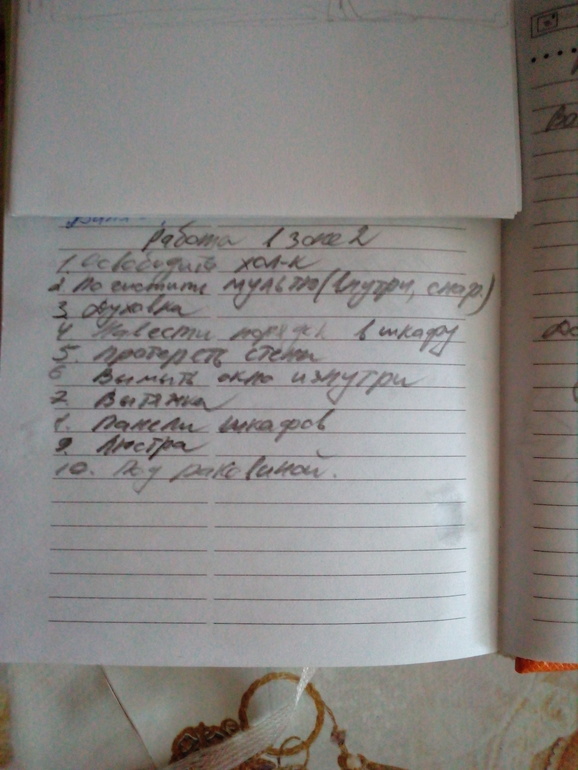 Работа в зоне 2
1. Освободить хол-к
2 Почистить мульти (внутри, снар.)
3 Духовка
4. Навести порядок в шкафу
5. Протереть стены
6 Вымыть окно изнутри
7. Вытяжка
8. Панели шкафов
9. Люстра
10. Под раковиной.